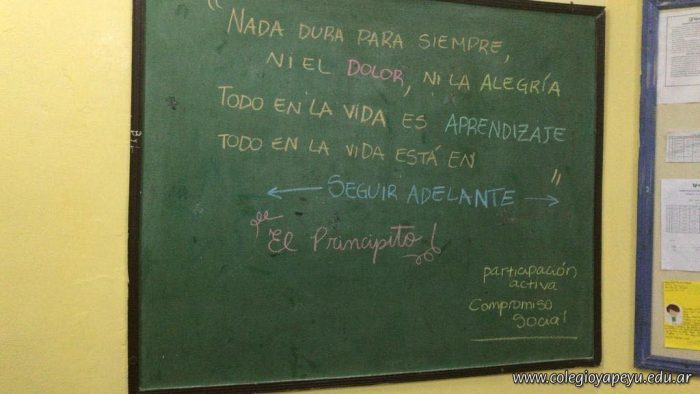 "NADA DURA PARA SIEMPRE,
NI EL DOLOR, NI LA ALEGRÍA
TODO EN LA VIDA ES APRENDIZAJE
TODO EN LA VIDA ESTÁ EN
← SEGUIR ADELANTE → "
El Principito
participación
activa
Compromiso
Social
www.colegioyapeyu.edu.ar